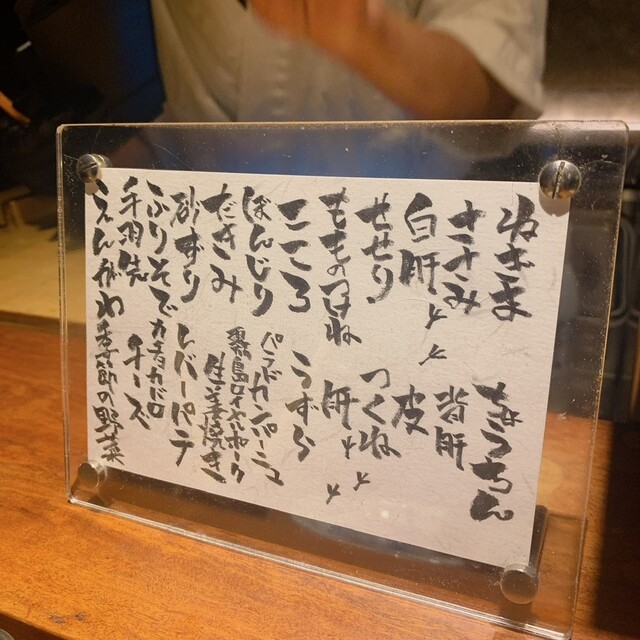 ねぎま　ちょうちん
ささみ　背肝
白肝　皮
せせり　つくね
もものつけね　肝
こころ　うずら
ぼんじり　パンドカンパーニュ
たきみ　霧島ロイヤルポーク生姜焼き
砂ずり　レバーパテ
ふりそで　カチョカバロチーズ
手羽先
えんがわ　季節の野菜